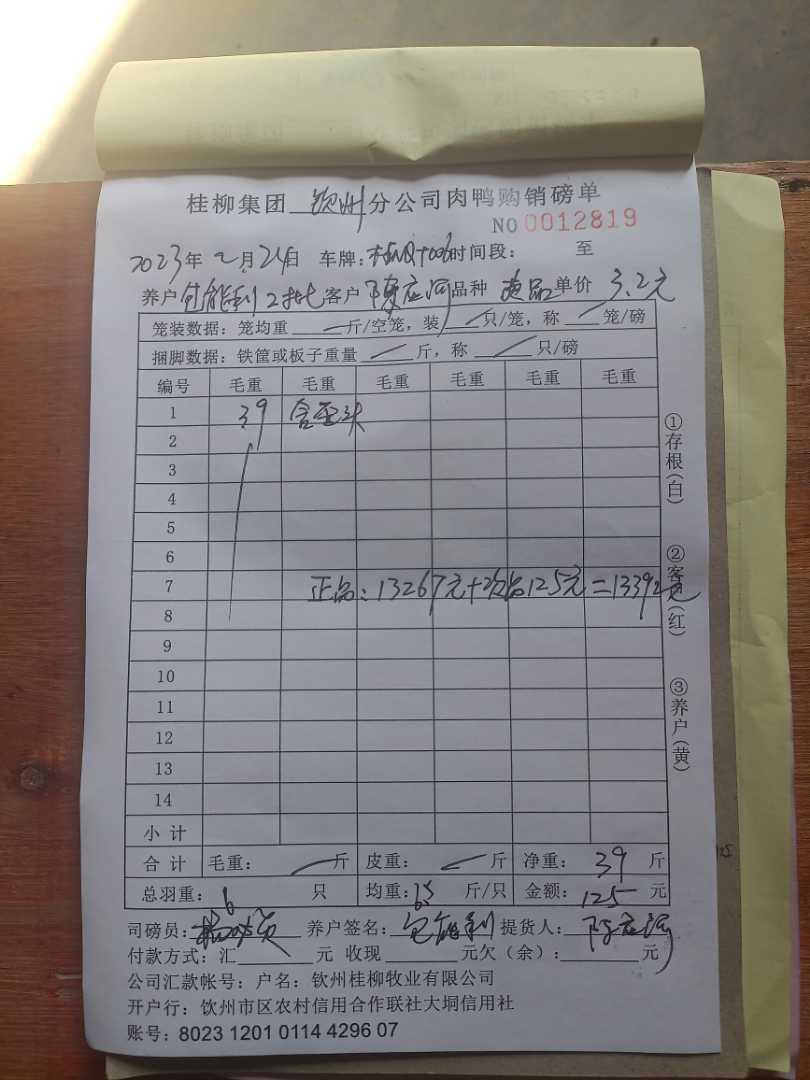 桂柳集团 钦州 分公司肉鸭购销磅单
NO 0012819
2023年 2月24日 车牌: 时间段: 至
养户 包能利 2批 客户 陈应河 品种 次品 单价 3.2元
笼装数据:笼均重 斤/空笼,装 只/笼,称 笼/磅
捆脚数据:铁筐或板子重量 斤,称 只/磅
编号 毛重 毛重 毛重 毛重 毛重 毛重
1 39
2
3
4
5
6
7 正品:13267元+次品125元=13392元
8
9
10
11
12
13
14
小计
合计 毛重: 斤 皮重: 斤 净重: 39 斤
总羽重: 6 只 均重: 6.5 斤/只 金额: 125 元
司磅员: 养户签名: 包能利 提货人: 陈应河
付款方式:汇 元 收现 元欠(余): 元
公司汇款帐号:户名:钦州桂柳牧业有限公司
开户行:钦州市区农村信用合作联社大垌信用社
账号:8023 1201 0114 4296 07
①存根(白)
②客 (红)
③养户(黄)